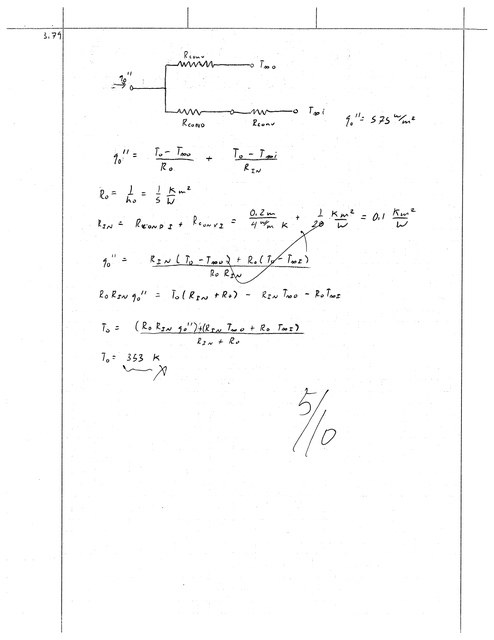 3.79
Rconv
T∞o
q₀''
Rcond Rconv T∞i q₀'' = 575 w/m²
q₀'' = (T₀ - T∞o)/R₀ + (T₀ - T∞i)/R_IN
R₀ = 1/h₀ = 1/5 K/W m²
R_IN = Rcond I + Rconv I = 0.2m / 4 w/m K + 1/20 Km²/W = 0.1 Km²/W
q₀'' = (R_IN (T₀ - T∞o) + R₀ (T₀ - T∞I)) / R₀ R_IN
R₀ R_IN q₀'' = T₀ (R_IN + R₀) - R_IN T∞o - R₀ T∞I
T₀ = ((R₀ R_IN q₀'') + (R_IN T∞o + R₀ T∞I)) / R_IN + R₀
T₀ = 353 K
5/10